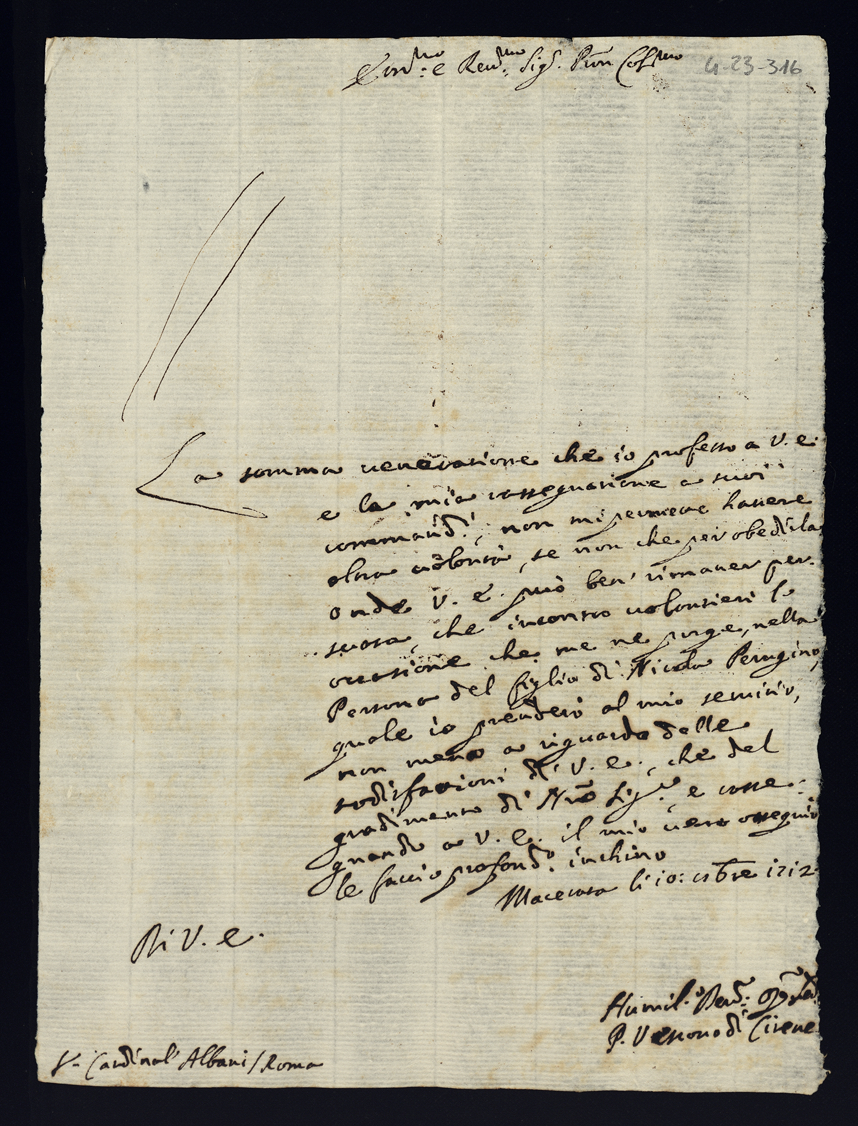 Em.mo e Rev.mo Sig.r Pron Col.mo
4-23-316
La somma venerazione che io professo a V. e.
e la mia rassegnazione a suoi
commandi, non mi permette havere
altra volontà, se non che per obedirla
onde V. e. può ben' rimaner per-
suasa, che incontro volontieri l'
occasione che me ne porge, nella
Persona del figlio di Nicola Perugino,
quale io prenderò al mio servitio,
non meno a riguardo delle
sodisfazioni di V. e., che del
gradimento di Nro Sig.re, e rasse-
gnando a V. e. il mio vero ossequio
le faccio profond.o inchino
Macerata li 10: 1712
Di V. e.
Humil.o
P. Vescovo di Cirene
Cardinal' Albani / Roma